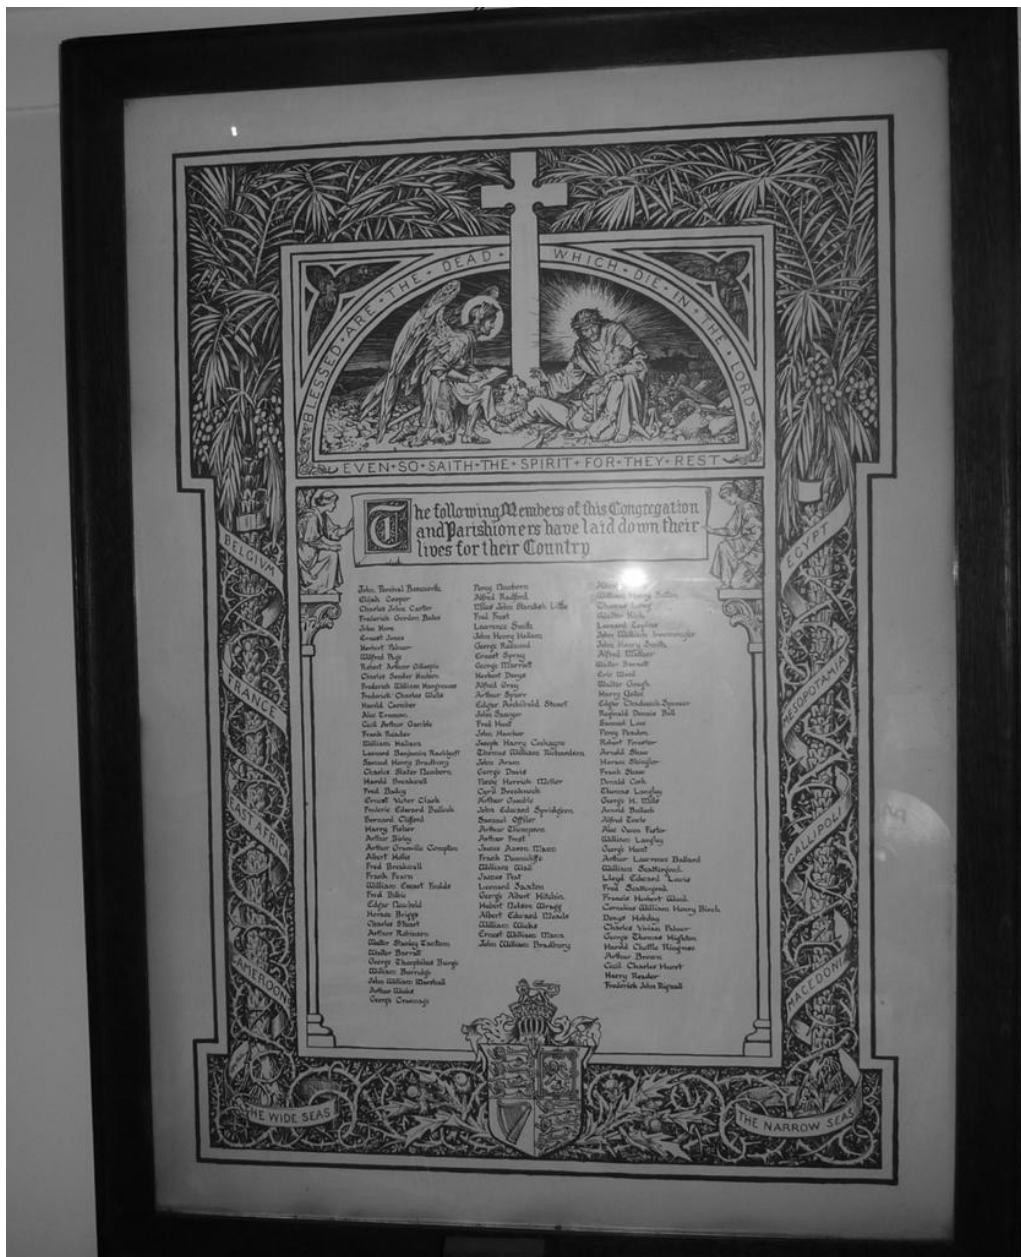 BLESSED · ARE · THE · DEAD · WHICH · DIE · IN · THE · LORD
EVEN · SO · SAITH · THE · SPIRIT · FOR · THEY · REST
The following Members of this Congregation
and Parishioners have laid down their
lives for their Country
BELGIUM
FRANCE
EAST AFRICA
CAMEROONS
THE WIDE SEAS
John Percival
Elijah Cooper
Charles John Carter
Frederick Gordon Bales
John Hore
Ernest Jones
Herbert Palmer
Wilfred
Robert Arthur Gillespie
Charles
Frederick William Hargreaves
Frederick Charles Wells
Harold Camber
Alec
Cecil Arthur Gamble
Frank Reader
William Hallam
Leonard Benjamin
Samuel Henry Bradbury
Charles Slater Newborn
Harold Breakwell
Fred Bailey
Ernest Victor Clark
Frederic Edward Bullock
Bernard Clifford
Harry Fisher
Arthur Bailey
Arthur Granville Compton
Albert
Fred Breakwell
Frank Fearn
William Ernest
Fred
Edgar Newbold
Horace Briggs
Charles Stuart
Arthur Robinson
Walter Stanley
Walter Barrall
George Theophilus
William Burridge
John William Marshall
Arthur Wicks
George Greenway
Percy Newborn
Alfred Radford
Miles John Standish Little
Fred Frost
Lawrence Smith
John Henry Hallam
George Redmond
Ernest Spray
George Marriott
Herbert Denys
Alfred Gray
Arthur Spurr
Edgar Archibald Stuart
John Sawyer
Fred Hunt
John Hawker
Joseph Harry Cockayne
Thomas William Richardson
John Aram
George Davis
Percy Herrick Miller
Cyril
Arthur Gamble
John Edward Spridgeon
Samuel Offiler
Arthur Thompson
Arthur Frost
James Aaron Mann
Frank Dunnicliffe
William Wall
James Peat
Leonard Saxton
George Albert Hitchin
Hubert Nelson Wragg
Albert Edward Meads
William Wicks
Ernest William Mann
John William Bradbury
William Henry
Thomas
Walter
Leonard
John William
John Henry Smith
Alfred
Walter Barnett
Eric Wood
Walter Gough
Harry Yates
Edgar Chadwick Spencer
Reginald Dennis Bell
Samuel Low
Percy
Robert Forester
Arnold Shaw
Horace Shingler
Frank Shaw
Donald Cork
Thomas Langley
George H. Mills
Arnold Bullock
Alfred
Alec Owen
William Langley
George Hunt
Arthur Lawrence Ballard
William Scattergood
Lloyd Edward Lewis
Fred Scattergood
Francis Herbert Wood
Cornelius William Henry Birch
Denys Hobday
Charles Vivian Palmer
George Thomas Highton
Harold
Arthur Brown
Cecil Charles Hurst
Harry Reader
Frederick John Rignall
EGYPT
MESOPOTAMIA
GALLIPOLI
MACEDONIA
THE NARROW SEAS